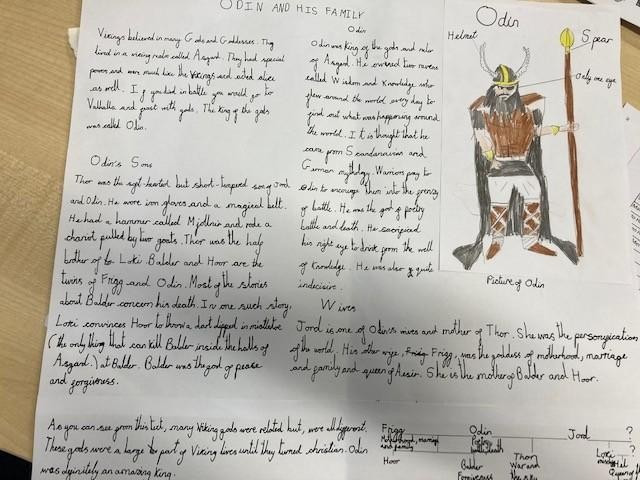 ODIN AND HIS FAMILY
Vikings believed in many Gods and Goddesses. They
lived in a viking realm called Asgard. They had special
power and were much like the Vikings and acted alive
as well. If you died in battle you would go to
Valhalla and feast with gods. The king of the gods
was called Odin.
Odin's Sons
Thor was the soft-hearted but short-tempered son of Jord
and Odin. He wore iron gloves and a magical belt.
He had a hammer called Mjollnir and rode a
chariot pulled by two goats. Thor was the half
brother of to Loki Balder and Hoor are the
twins of Frigg and Odin. Most of the stories
about Balder concern his death. In one such story,
Loki convinces Hoor to throw a dart dipped in mistletoe
(the only thing that can kill Balder inside the halls of
Asgard.) at Balder. Balder was the god of pease
and forgivness.
Odin
Odin was King of the gods and ruler
of Asgard. He owned two ravens
called Wisdom and Knowledge who
flew around the world every day to
find out what was happening around
the world. It is thought that he
came from Scandanavian and
German mythology. Warriors pray to
Odin to encourage them into the frenzy
of battle. He was the god of poetry
battle and death. He sacrificed
his right eye to drink from the well
of Knowledge. He was also quite
indecisive.
Odin
Helmet
Spear
Only one eye
Picture of Odin
Wives
Jord is one of Odin's wives and mother of Thor. She was the personification
of the world. His other wife, Frigg, was the goddess of motherhood, marriage
and family and queen of Aesir. She is the mother of Balder and Hoor.
As you can see from this text, many Viking gods were related but, were all different.
These gods were a large part of Viking lives until they turned christian. Odin
was definitely an amazing king.
Frigg Odin Jord ?
Motherhood, marriage
and family
Poetry
battle death
Hoor
Balder
Forgiveness
Thor
War and
the sky
Loki
?
Hel
Queen of